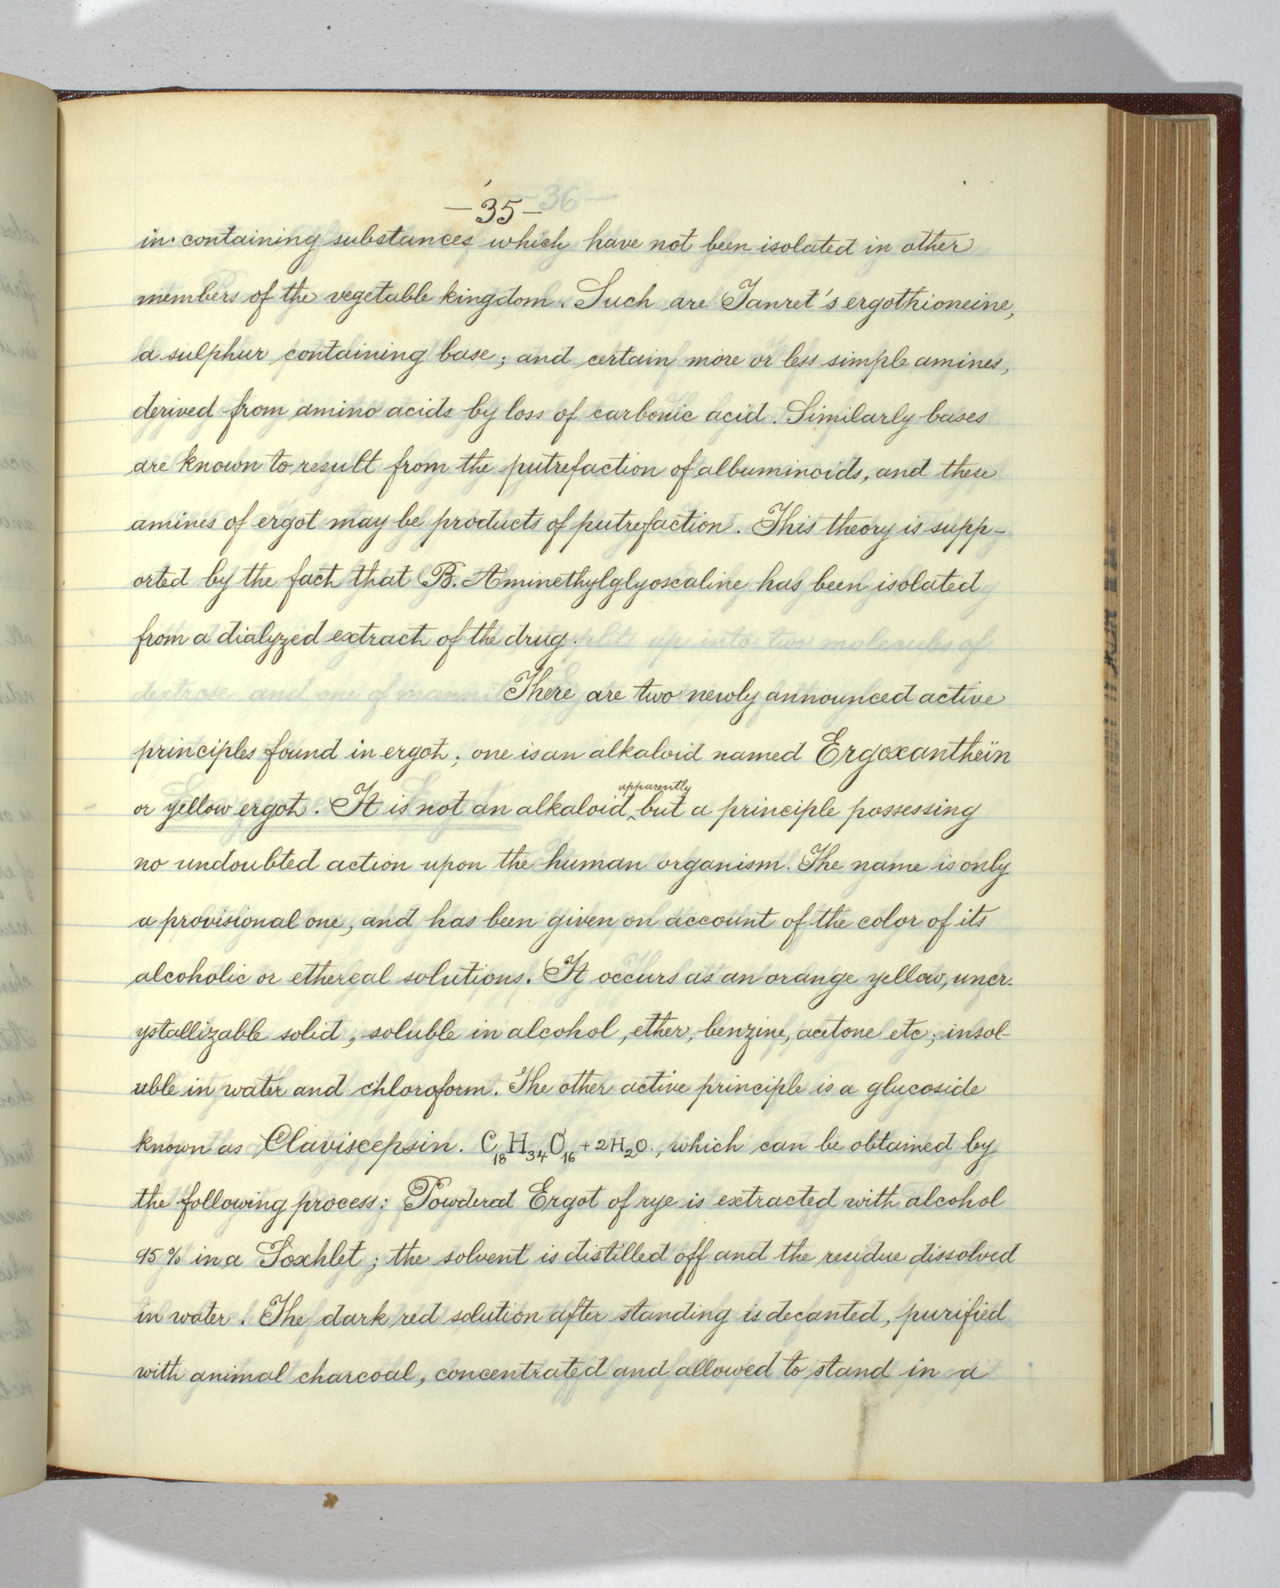 -35-
in containing substances which have not been isolated in other
members of the vegetable kingdom. Such are Tanret's ergothioneine,
a sulphur containing base; and certain more or less simple amines,
derived from amino acids by loss of carbonic acid. Similarly bases
are known to result from the putrefaction of albuminoids, and these
amines of ergot may be products of putrefaction. This theory is supp-
orted by the fact that B. Aminethylglyoscaline has been isolated
from a dialyzed extract of the drug.
There are two newly announced active
principles found in ergot; one is an alkaloid named Ergoxantheïn
or yellow ergot. It is not an alkaloid, apparently but a principle possessing
no undoubted action upon the human organism. The name is only
a provisional one, and has been given on account of the color of its
alcoholic or ethereal solutions. It occurs as an orange yellow, uncr-
ystallizable solid, soluble in alcohol, ether, benzine, acetone etc; insol-
uble in water and chloroform. The other active principle is a glucoside
known as Claviscepsin. C18H34O16+2H2O., which can be obtained by
the following process: Powdered Ergot of rye is extracted with alcohol
95% in a Soxhlet; the solvent is distilled off and the residue dissolved
in water. The dark red solution after standing is decanted, purified
with animal charcoal, concentrated and allowed to stand in a